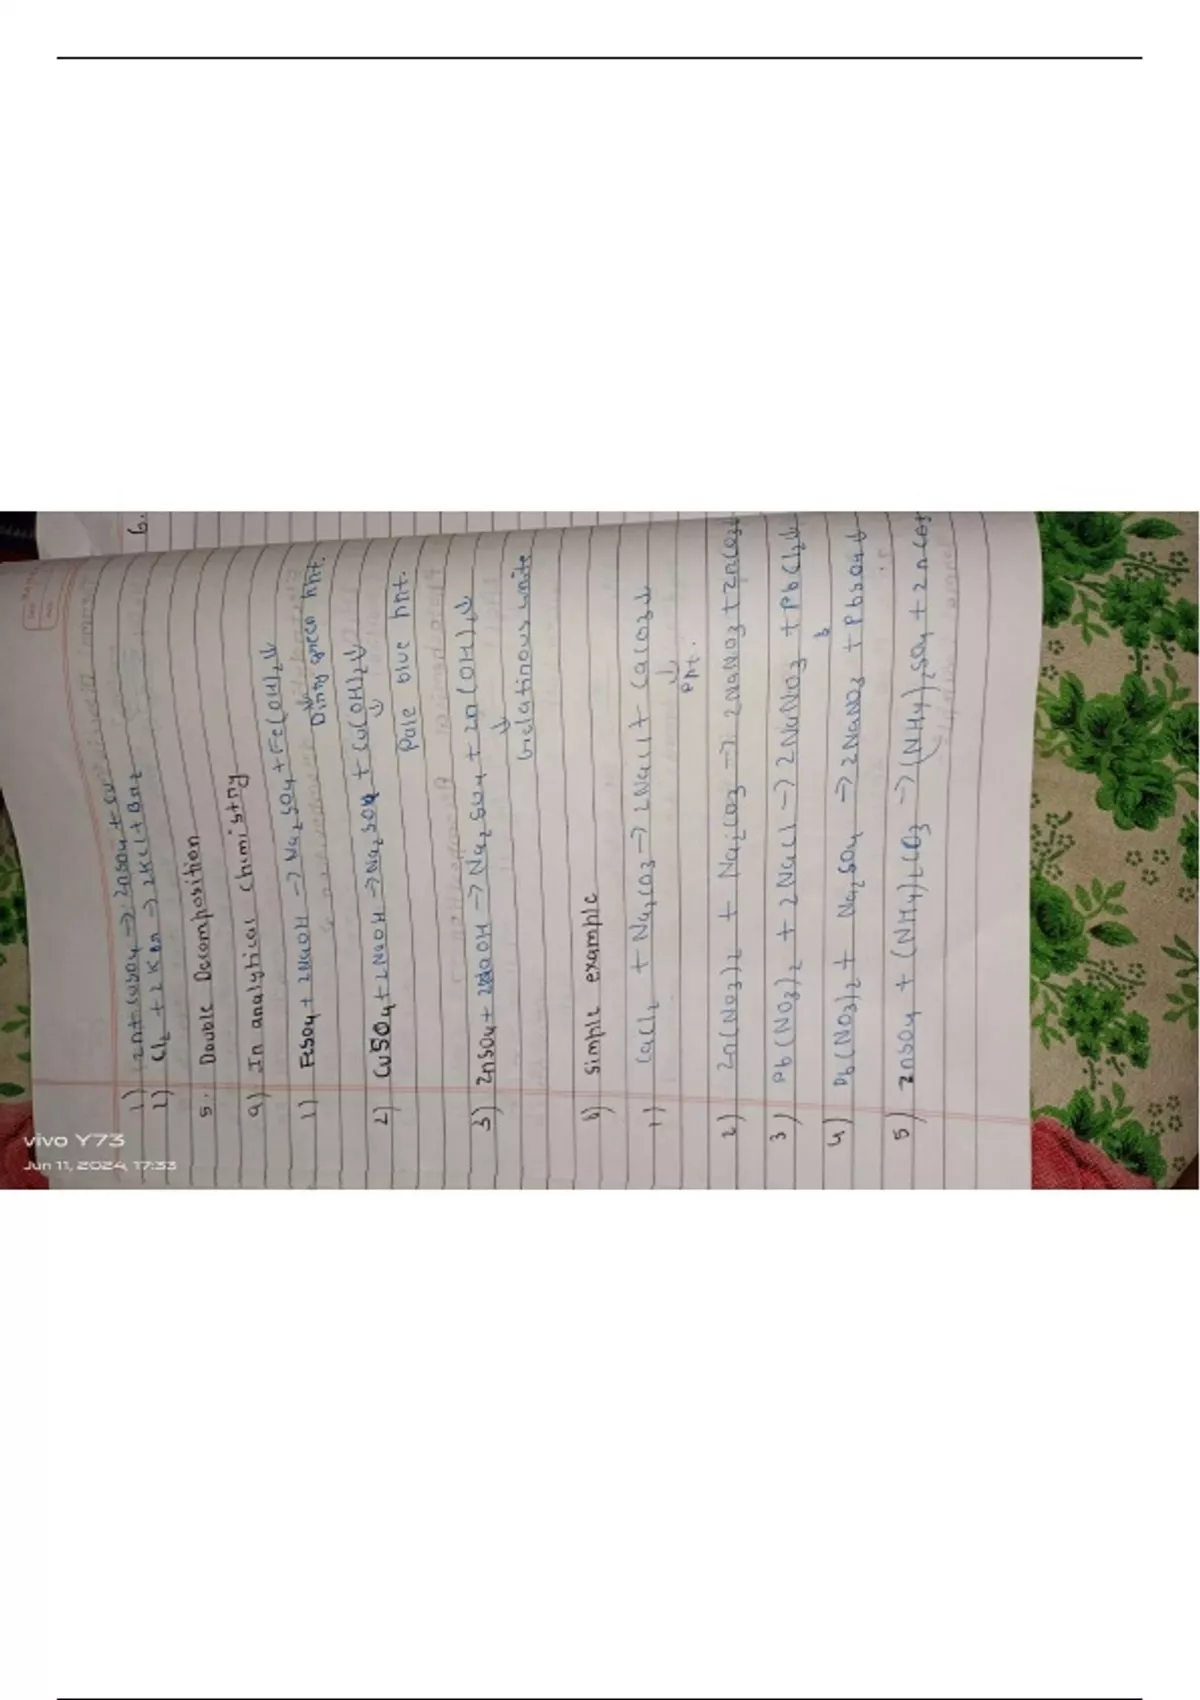 1) Zn+CuSO4 → ZnSO4 + Cu
2) Cl2 + 2KBr → 2KCl + Br2
6.
5. Double Decomposition
a) In analytical Chimistry
1) FeSO4 + 2NaOH → Na2SO4 + Fe(OH)2↓
↓
Dirty green ppt.
2) CuSO4 + 2NaOH → Na2SO4 + Cu(OH)2↓
↓
Pale blue ppt.
3) ZnSO4 + 2NaOH → Na2SO4 + Zn(OH)2↓
↓
Gelatinous white
b) Simple example
1) CaCl2 + Na2CO3 → 2NaCl + CaCO3↓
↓
ppt.
2) Zn(NO3)2 + Na2CO3 → 2NaNO3 + ZnCO3↓
3) Pb(NO3)2 + 2NaCl → 2NaNO3 + PbCl2↓
4) Pb(NO3)2 + Na2SO4 → 2NaNO3 + PbSO4↓
5) ZnSO4 + (NH4)2CO3 → (NH4)2SO4 + ZnCO3
vivo Y73
Jun 11, 2024, 17:33